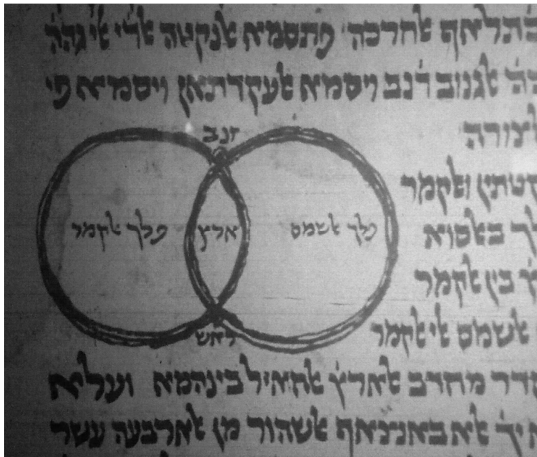 אלחרכה פתסמא אלנקטה אלדי אלי גהה
אלגנוב דנב ויסמא אלעקדתאן ויסמיא פי
אלצורה
דנב
ואלקמר
פלך אלשמס ארץ פלך אלקמר
באסוא
בין אלקמר
אלשמס אלי אלקמר
ראש
אלארץ אלחאיל בינהמא ועליא
אלא באנצאף אלשהור מן אלארבעה עשר